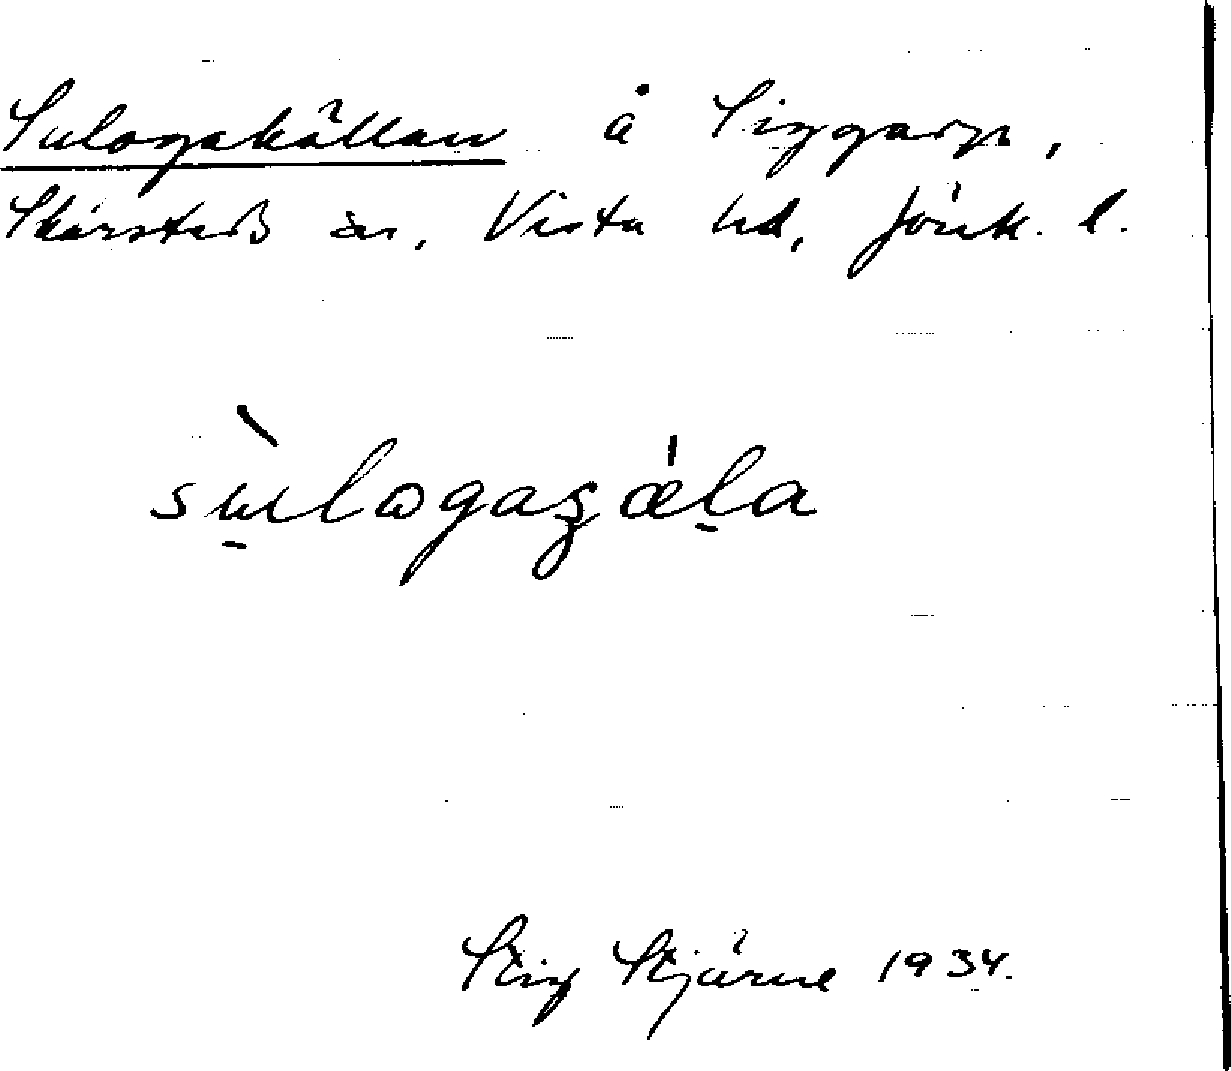 Sulogakällan å Siggarp,
Skärstads sn, Vista hd, Jönk. l.
sùlogaʒǽla
Stig Stjärne 1934.